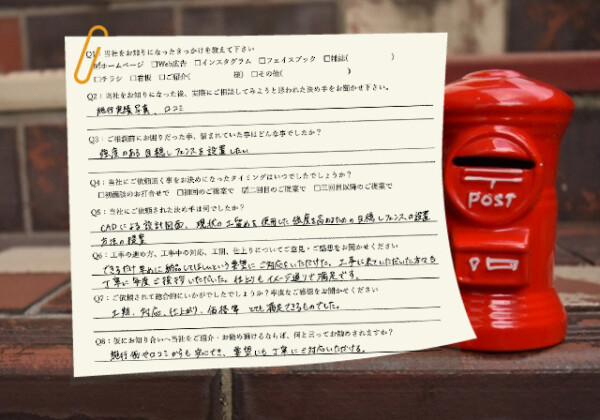 Q1：当社をお知りになったきっかけを教えて下さい
☑ホームページ □Web広告 □インスタグラム □フェイスブック □雑誌( )
□チラシ □看板 □ご紹介( 様) □その他( )
Q2：当社をお知りになった後、実際にご相談してみようと思われた決め手をお聞かせ下さい。
施行実績写真、口コミ
Q3：ご相談前にお困りだった事、悩まれていた事はどんな事でしたか？
強度のある目隠しフェンスを設置したい
Q4：当社にご依頼頂く事をお決めになったタイミングはいつでしたでしょうか？
□初回のお打合せで □初回のご提案で ☑二回目のご提案で □三回目以降のご提案で
Q5：当社にご依頼された決め手は何でしたか？
CADによる設計図面、現状の土留めを使用した強度を高めるための目隠しフェンスの設置
方法の提案
Q6：工事の進め方、工事中の対応、工期、仕上りについてご意見・ご感想をお聞かせください
できるだけ早めに納品してほしいという要望にご対応をいただけた。工事に来ていただいた方々も
丁寧に作業して頂いただいた。仕上りもイメージ通りで満足です。
Q7：ご依頼されて総合的にいかがでしたでしょうか？率直なご感想をお聞かせください
工期、対応、仕上がり、価格等 とても満足できるものでした。
Q8：仮にお知り合いへ当社をご紹介・お勧め頂けるならば、何と言ってお勧めされますか？
施行例や口コミからも安心でき、要望にも丁寧にご対応いただける。
POST